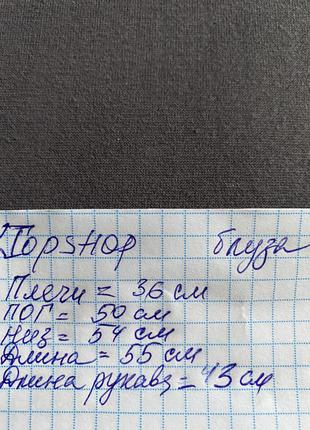 Topshop блуза
Плечи = 36 см
ПОГ = 50 см
Низ = 54 см
Длина = 55 см
Длина рукава = 43 см